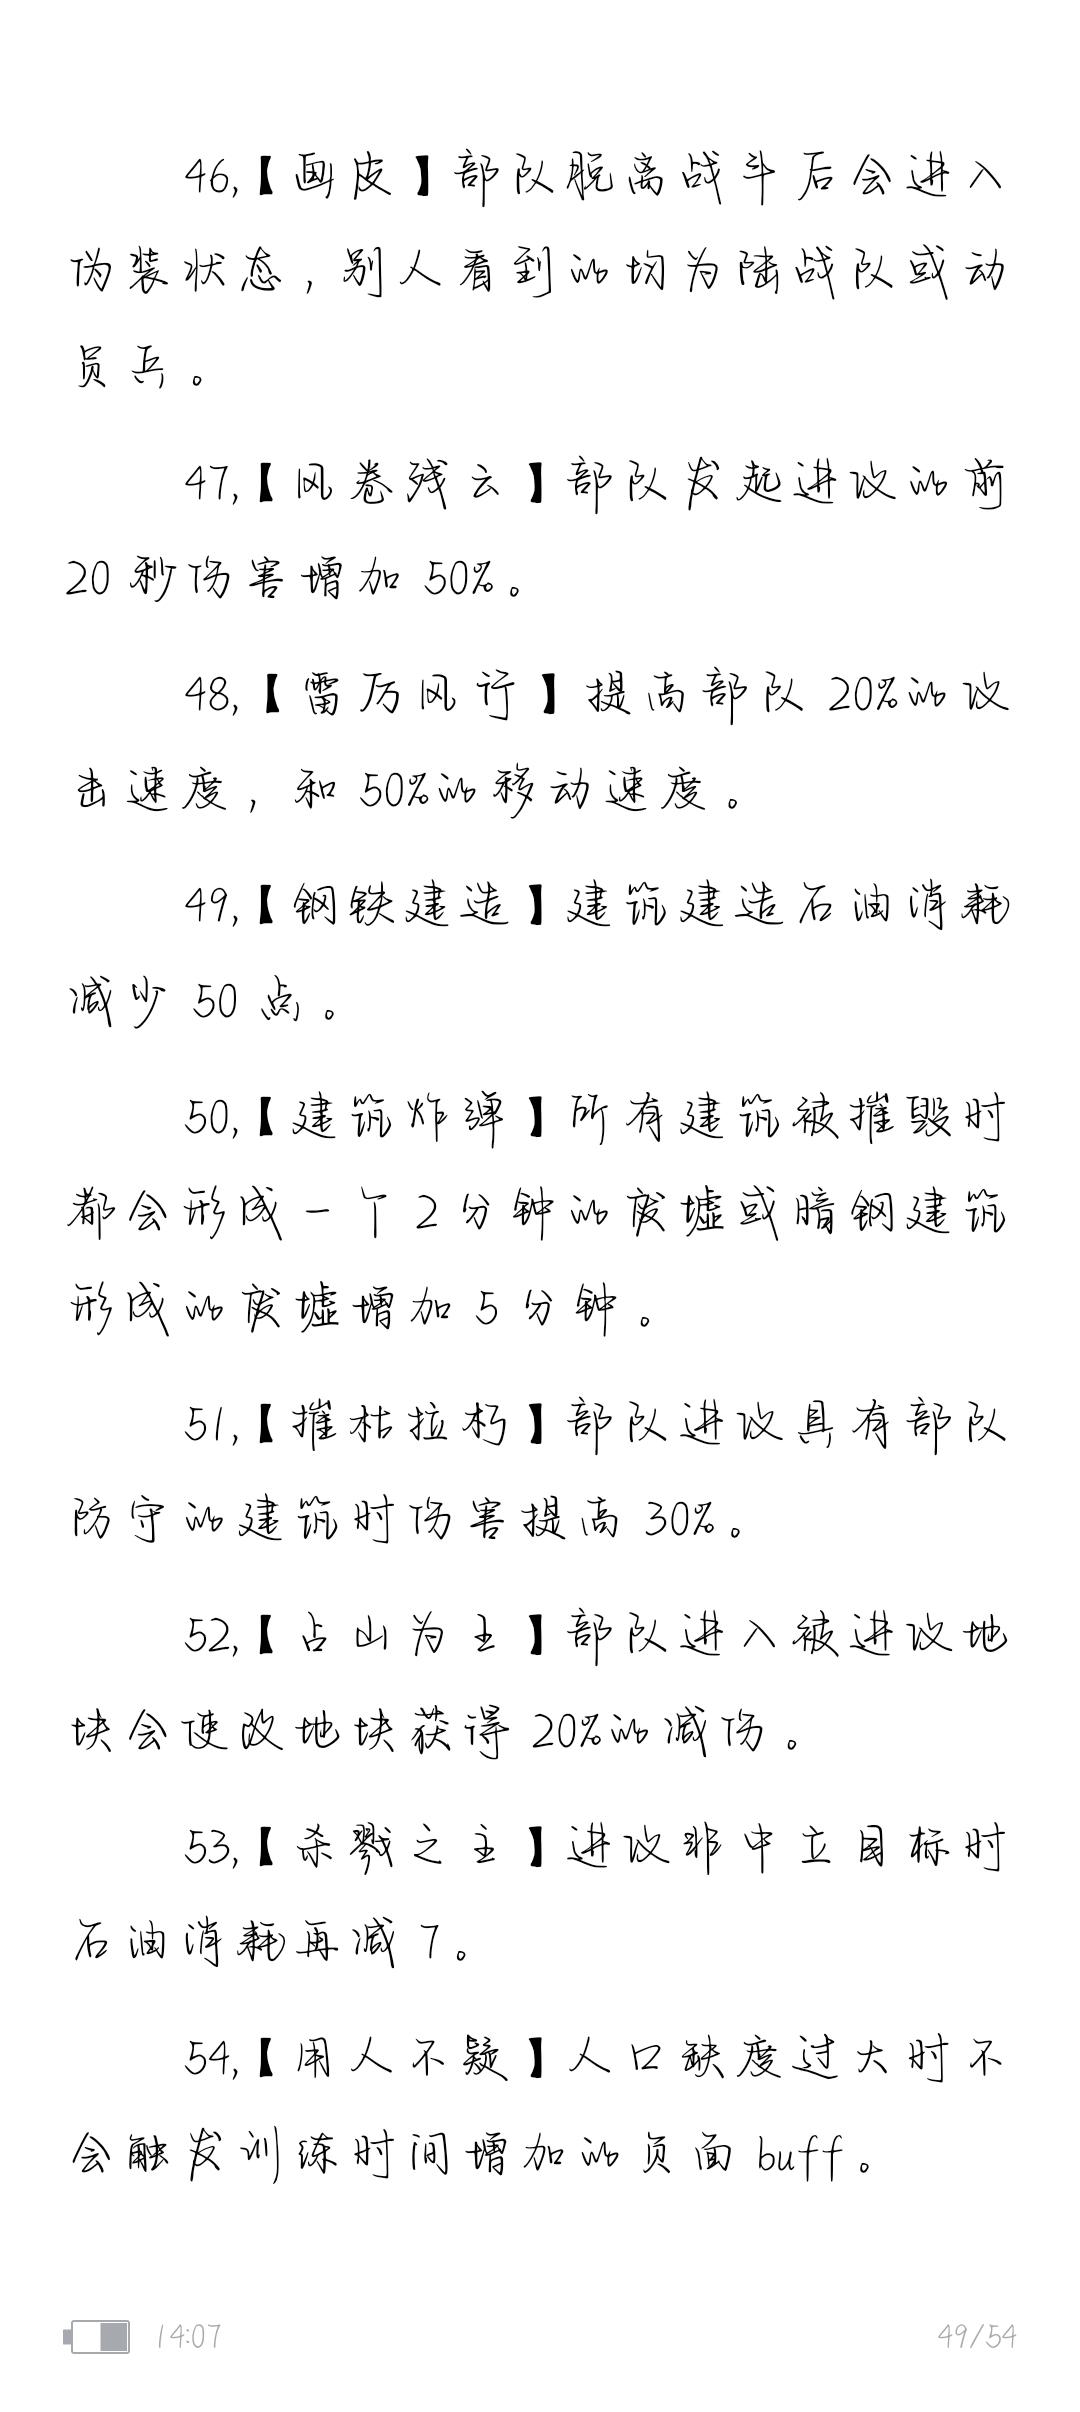 46,【画皮】部队脱离战斗后会进入
伪装状态，别人看到的均为陆战队或动
员兵。
47,【风卷残云】部队发起进攻的前
20秒伤害增加50%。
48,【雷厉风行】提高部队20%的攻
击速度，和50%的移动速度。
49,【钢铁建造】建筑建造石油消耗
减少50点。
50,【建筑炸弹】所有建筑被摧毁时
都会形成一个2分钟的废墟或暗钢建筑
形成的废墟增加5分钟。
51,【摧枯拉朽】部队进攻具有部队
防守的建筑时伤害提高30%。
52,【占山为王】部队进入被进攻地
块会使改地块获得20%的减伤。
53,【杀戮之主】进攻非中立目标时
石油消耗再减7。
54,【用人不疑】人口缺度过大时不
会触发训练时间增加的负面buff。
14:07
49/54